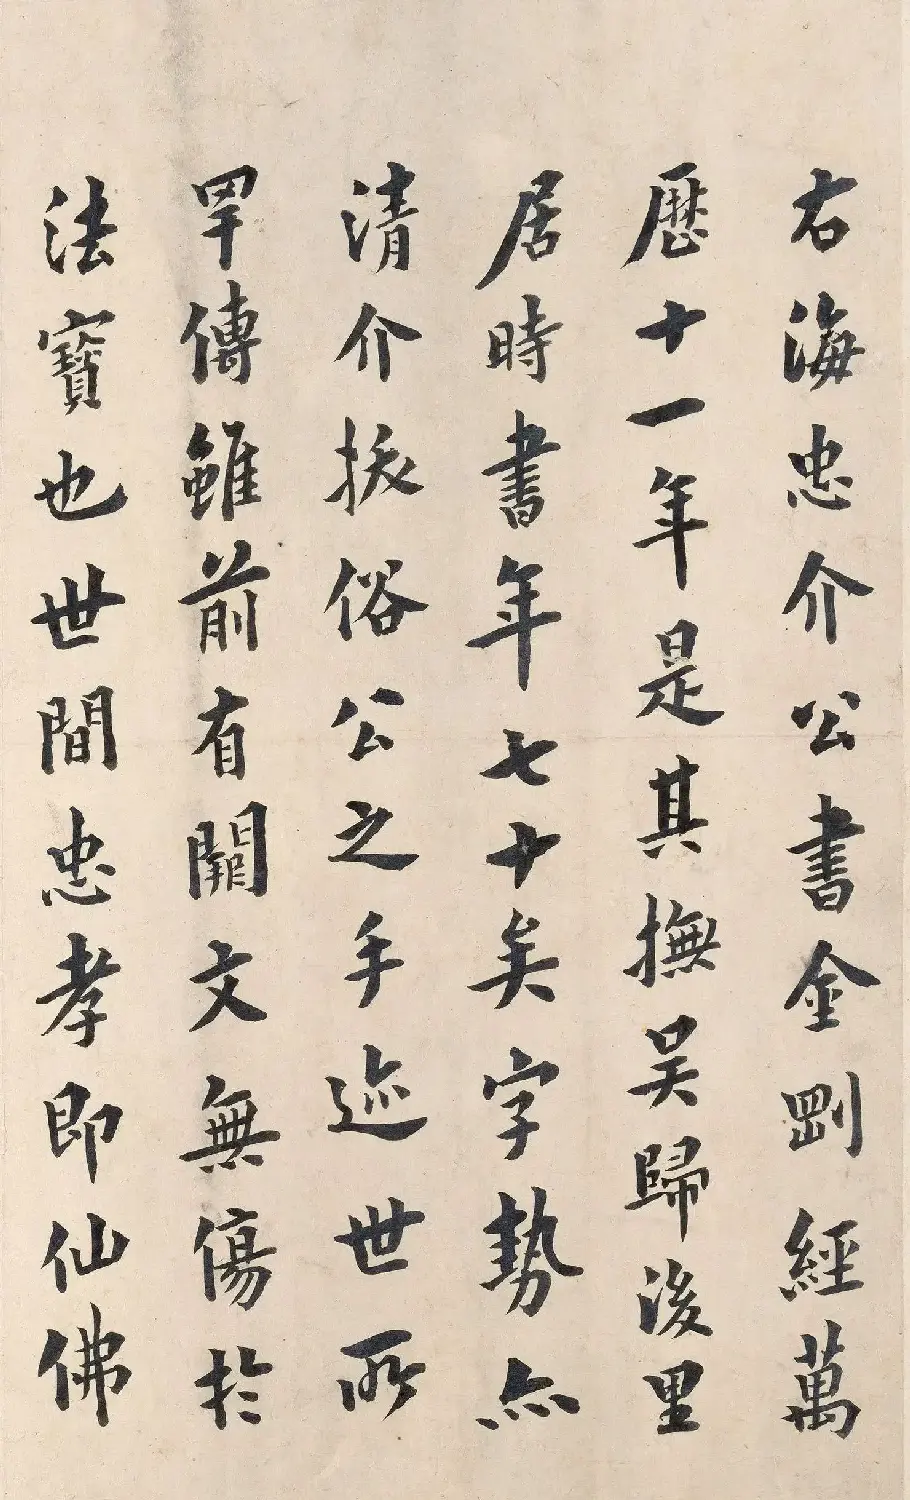 右海忠介公書金剛經萬
歷十一年是其撫吳歸後里
居時書年七十矣字勢亦
清介振俗公之手迹世所
罕傳雖前有闕文無傷於
法寶也世間忠孝即仙佛